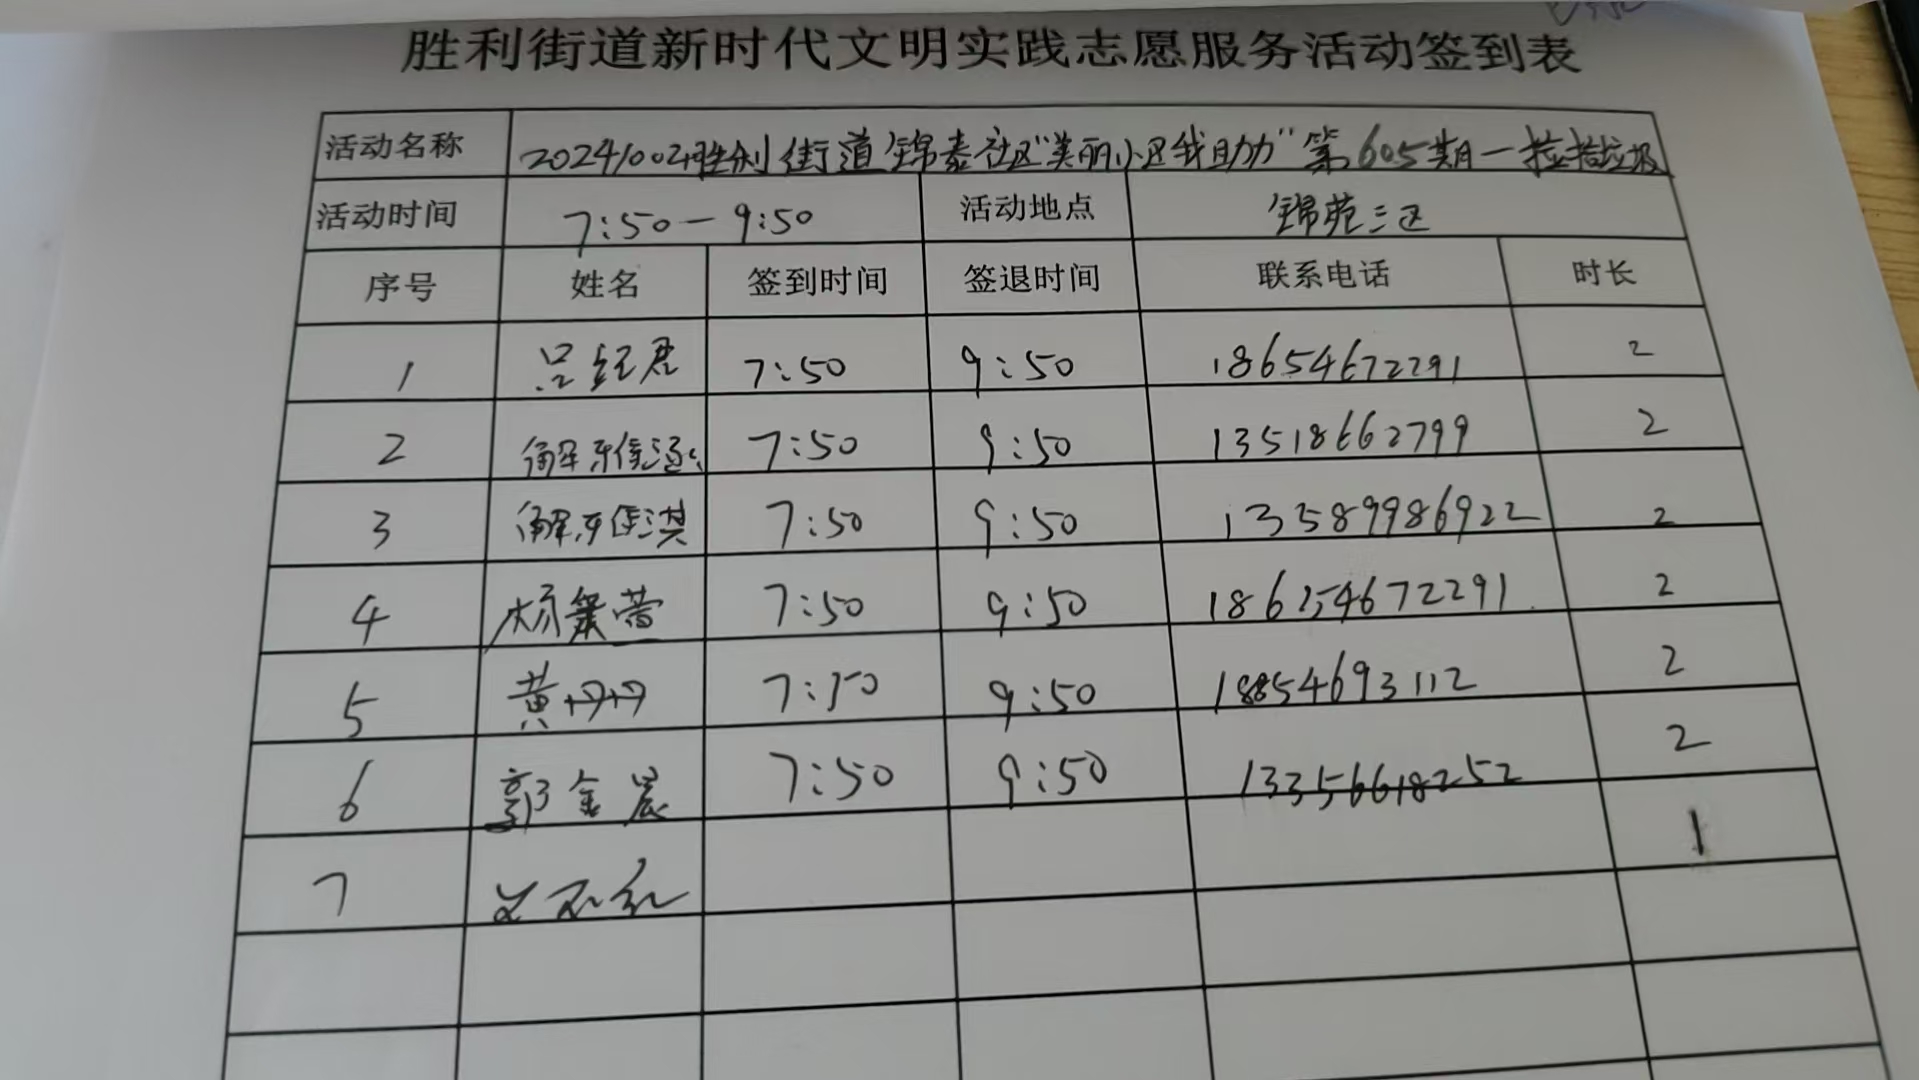 胜利街道新时代文明实践志愿服务活动签到表
活动名称 20241002胜利街道锦泰社区"美丽小区我助力"第605期一捡拾垃圾
活动时间 7:50-9:50 活动地点 锦苑三区
序号 姓名 签到时间 签退时间 联系电话 时长
1 吕红君 7:50 9:50 18654672291 2
2 解 7:50 9:50 13518662799 2
3 解 淇 7:50 9:50 13589986922 2
4 杨 7:50 9:50 18654672291 2
5 黄丹丹 7:50 9:50 18854693112 2
6 郭金晨 7:50 9:50 13356618252 2
7 1